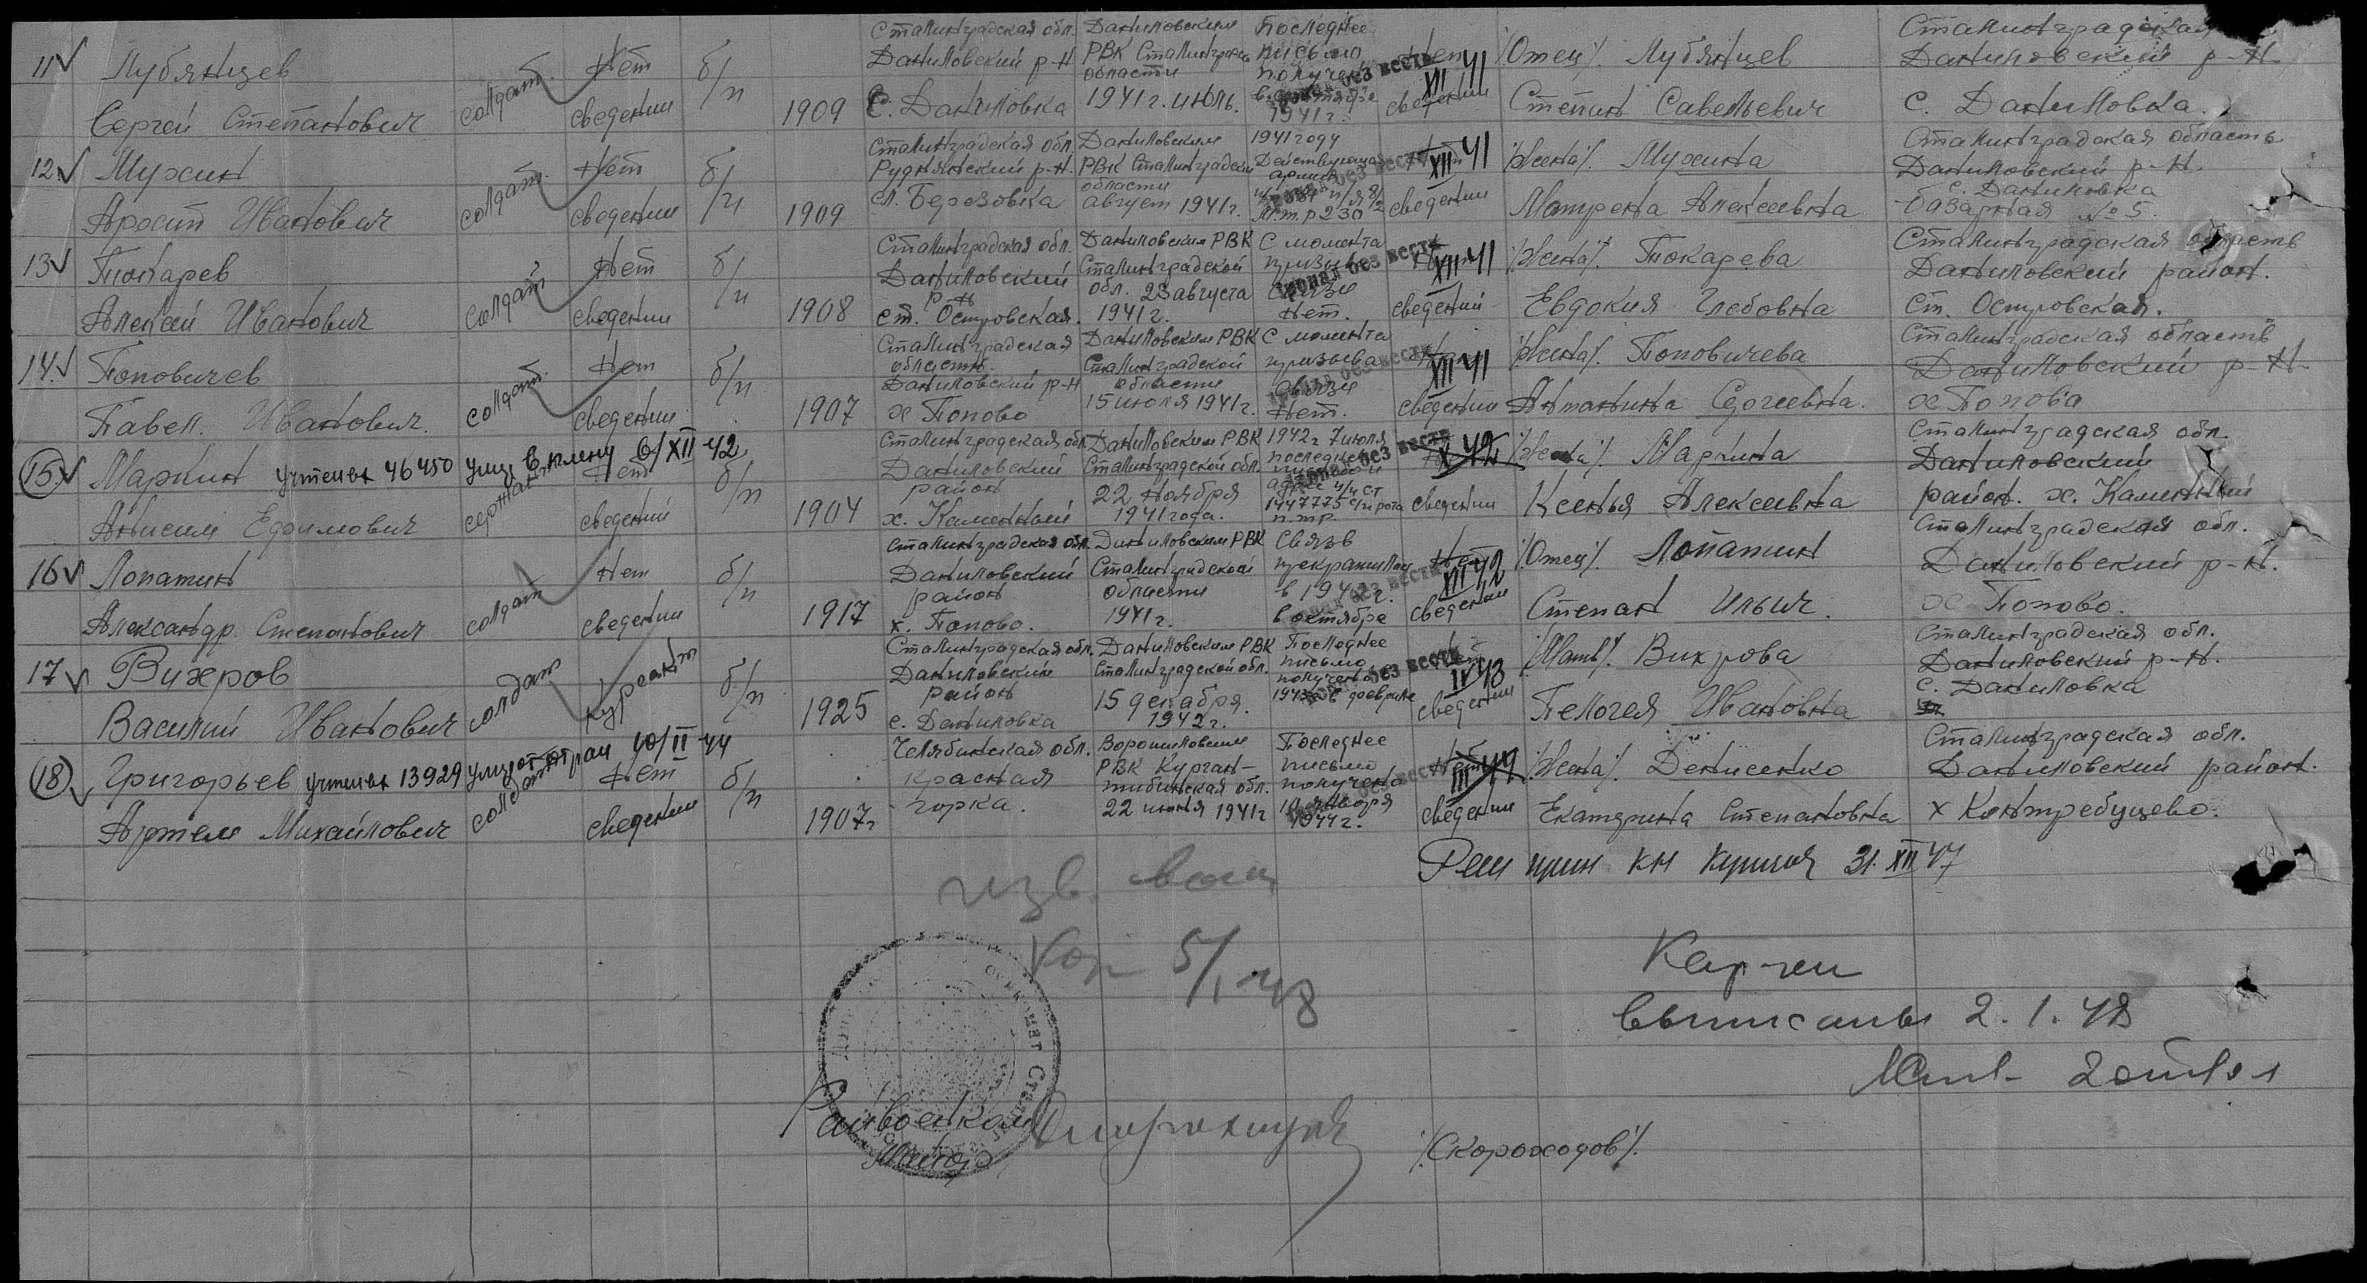 11 Лубянцев
Сергей Степанович
солдат
Нет
сведении
б/п
1909
Сталинградская обл.
Даниловский р-н
с. Даниловка
Даниловским
РВК Сталинград.
области
1941 г. июль.
Последнее
письмо
получен
1941 г.
пропал без вести
XII 41
сведении
/Отец/. Лубянцев
Степан Савельевич
Сталинградская
Даниловский р-н.
с. Даниловка.
12 Мухин
Иванович
солдат.
Нет
сведении
б/п
1909
Сталинградская обл
Руднянский р-н.
сл. Березовка
Даниловским
РВК Сталинградской
области
август 1941 г.
1941 году
Действующая
армия
пропал без вести
XII 41
сведении
/Жена/. Мухина
Матрена Алексеевна
Сталинградская область
Даниловский р-н.
с. Даниловка
базарная № 5.
13 Токарев
Алексей Иванович
солдат
Нет
сведении
б/п
1908
Сталинградская обл.
Даниловский
р-н
ст. Островская.
Даниловским РВК
Сталинградской
обл. 23 августа
1941 г.
С момента
призыва
связи
нет.
пропал без вести
XII 41
сведений
/Жена/. Токарева
Евдокия Глебовна
Сталинградская область
Даниловский район.
ст. Островская.
14. Поповичев
Павел. Иванович.
солдат.
Нет
сведении
б/п
1907
Сталинградская
область.
Даниловский р-н
х Попово
Даниловским РВК
Сталинградской
области
15 июля 1941 г.
С момента
призыва
связи
нет.
пропал без вести
XII 41
сведении
/Жена/. Поповичева
Антанина Сергеевна.
Сталинградская область
Даниловский р-н.
х Попова
15 Маркин учтен вх 46450 умер в плену 6/XII-42
Анисим Ефимович
сержант
Нет
сведений
б/п
1904
Сталинградская обл.
Даниловский
район
х. Каменный
Даниловским РВК
Сталинградской обл.
22 ноября
1941 года.
1942 г 7 июля
последнее
пропал без вести
X 42
сведении
/Жена/. Маркина
Ксенья Алексеевна
Сталинградская обл.
Даниловский
район. х. Каменный
16 Лопатин
Александр. Степанович
солдат
Нет
сведении
б/п
1917
Сталинградская обл.
Даниловский
район
х. Попово.
Даниловским РВК
Сталинградской
области
1941 г.
Связь
прекратилась
в октябре
пропал без вести
XII 42
сведении
/Отец/. Лопатин
Степан Ильич.
Сталинградская обл.
Даниловский р-н.
х Попово.
17 Вихров
Василий Иванович
солдат
курсант
б/п
1925
Сталинградская обл.
Даниловский
район
с. Даниловка
Даниловским РВК
Сталинградской обл.
15 декабря.
1942 г.
Последнее
письмо
получено
1943 в феврале
пропал без вести
IV 43
сведении
/Мать/. Вихрова
Пелогея Ивановна
Сталинградская обл.
Даниловский р-н.
с. Даниловка
18 Григорьев учтен вх 13929 умер от ран 10/II-44
Артем Михайлович
солдат
Нет
сведении
б/п
1907 г
Челябинская обл.
Красная
горка.
Ворошиловским
РВК Курган-
тюбинская обл.
22 июня 1941 г
Последнее
письмо
получено
10 января
1944 г.
пропал без вести
III 44
сведении
/Жена/. Денисенко
Екатерина Степановна
Сталинградская обл.
Даниловский район.
х Контребуцево.
31.XII 47
изв.
5/I-48
Карт-чки
выписаны 2.1.48
Райвоенком
Майор
/Скороходов/.